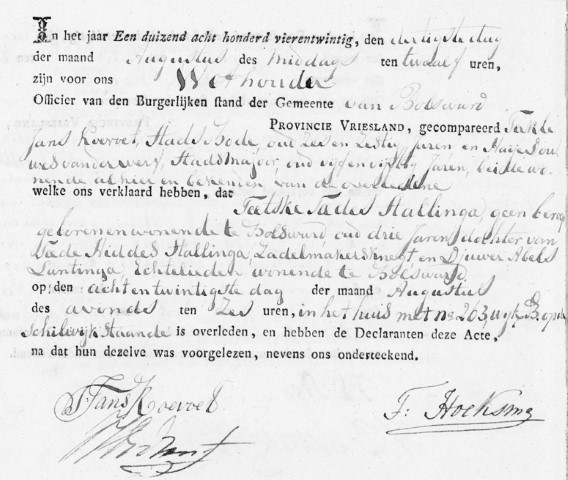 In het jaar Een duizend acht honderd vierentwintig, den dertigste dag
der maand Augustus des middags ten twaalf uren,
zijn voor ons Wethouder
Officier van den Burgerlijken stand der Gemeente van Bolsward
PROVINCIE VRIESLAND, gecompareerd Feekle
Jans Koevoet, Stads Bode, oud Zes en Zestig Jaren en Huise Dou
wes van der Werf, Stadsmajoor, oud vijf en vijftig Jaren, beide wo-
nende alhier en bekenden van de overledene
welke ons verklaard hebben, dat
Taetske Tades Hallinga, geen beroep
geboren en wonende te Bolsward, oud drie Jaren, dochter van
Tade Hiddes Hallinga, Zadelmakersknegt en Djuwer Abels
Lantinga, Echtelieden wonende te Bolsward
op den achtentwintigste dag der maand Augustus
des avonds ten Zes uren, in het huis met no 203, wijk B, op de
Schilwijk Staande is overleden, en hebben de Declaranten deze Acte,
na dat hun dezelve was voorgelezen, nevens ons onderteekend.
F: Jans Koevoet. F: Hoeksma